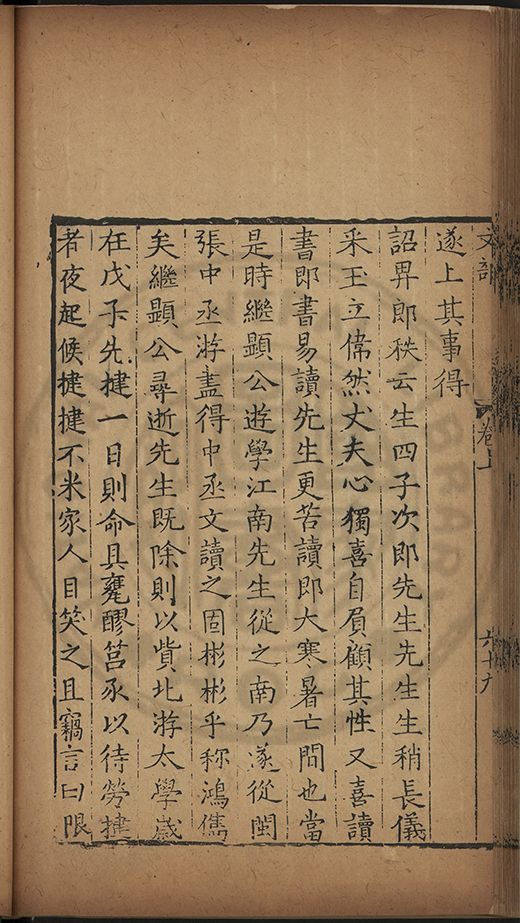 文部 卷上 六十九
遂上其事得
詔畀郎秩云生四子次即先生先生生稍長儀
采玉立偉然丈夫心獨喜自負顧其性又喜讀
書即書易讀先生更苦讀即大寒暑亡間也當
是時繼顯公遊學江南先生從之南乃遂從閩
張中丞游盡得中丞文讀之固彬彬乎稱鴻儁
矣繼顯公尋逝先生既除則以貲北游太學歲
在戊子先揵一日則命具甕醪筥承以待勞揵
者夜起候揵揵不米家人目笑之且竊言曰限